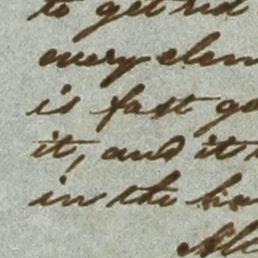 to get rid
every elem
is fast go
it, and it
in the